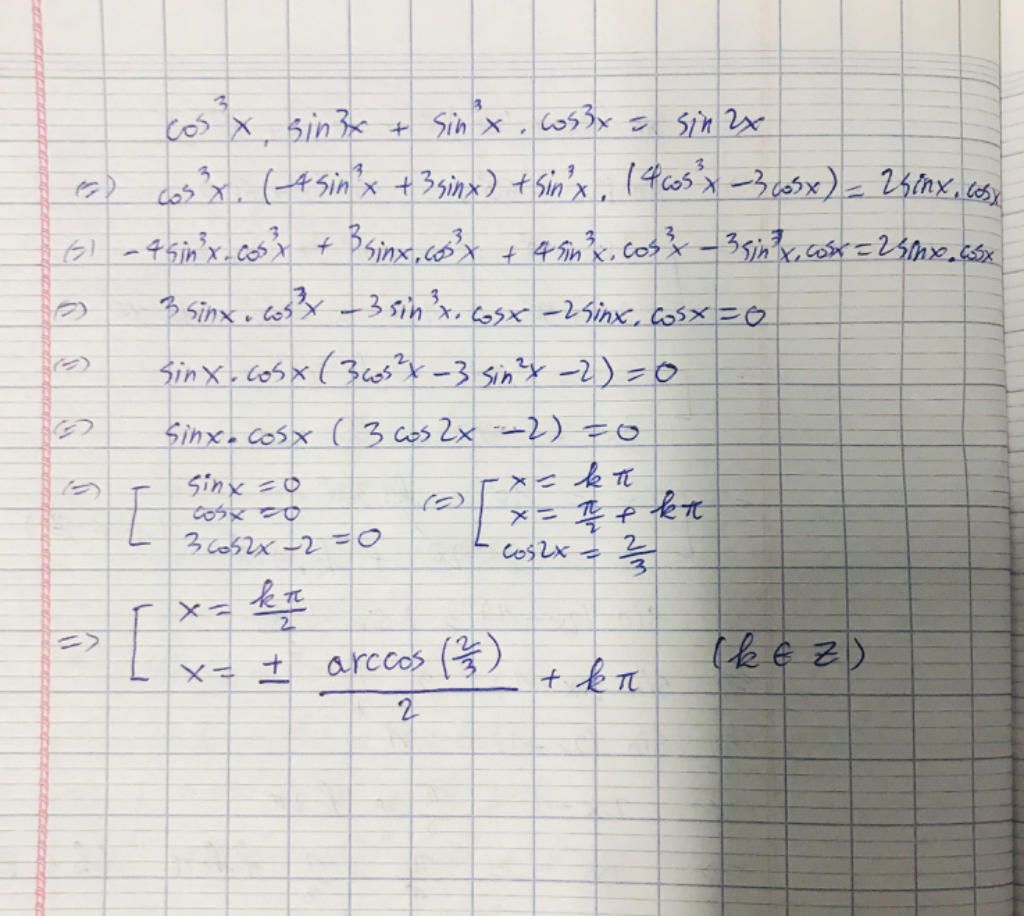 cos³x . sin3x + sin³x . cos3x = sin 2x
(=) cos³x . (-4 sin³x + 3 sinx) + sin³x . (4cos³x - 3 cosx) = 2 sinx . cosx
(=) -4 sin³x . cos³x + 3 sinx . cos³x + 4 sin³x . cos³x - 3 sin³x . cosx = 2 sinx . cosx
(=) 3 sinx . cos³x - 3 sin³x . cosx - 2 sinx . cosx = 0
(=) sinx . cosx ( 3cos²x - 3 sin²x - 2) = 0
(=) sinx . cosx ( 3 cos2x - 2) = 0
(=) [ sinx = 0 (=) [ x = kπ
cosx = 0 x = π/2 + kπ
3cos2x - 2 = 0 cos2x = 2/3
=> [ x = kπ/2
x = ± arccos (2/3) / 2 + kπ (k ∈ Z)